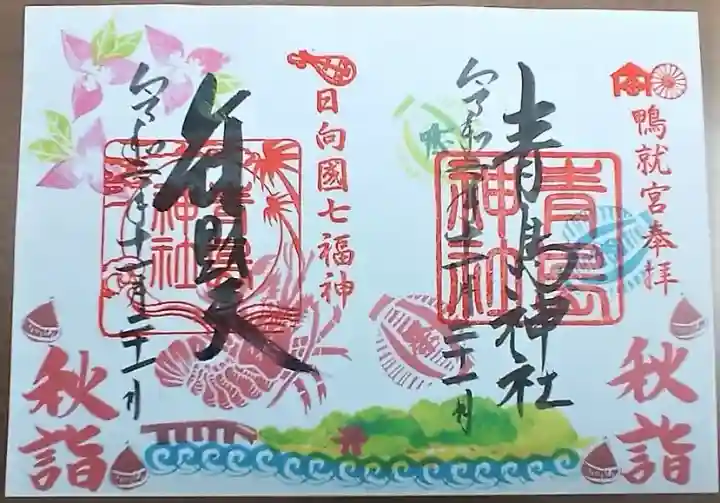 鴨就宮奉拝
青島神社
青島神社
令和二年十一月二十一日
秋詣
日向國七福神
弁財天
青島神社
令和二年十一月二十一日
秋詣